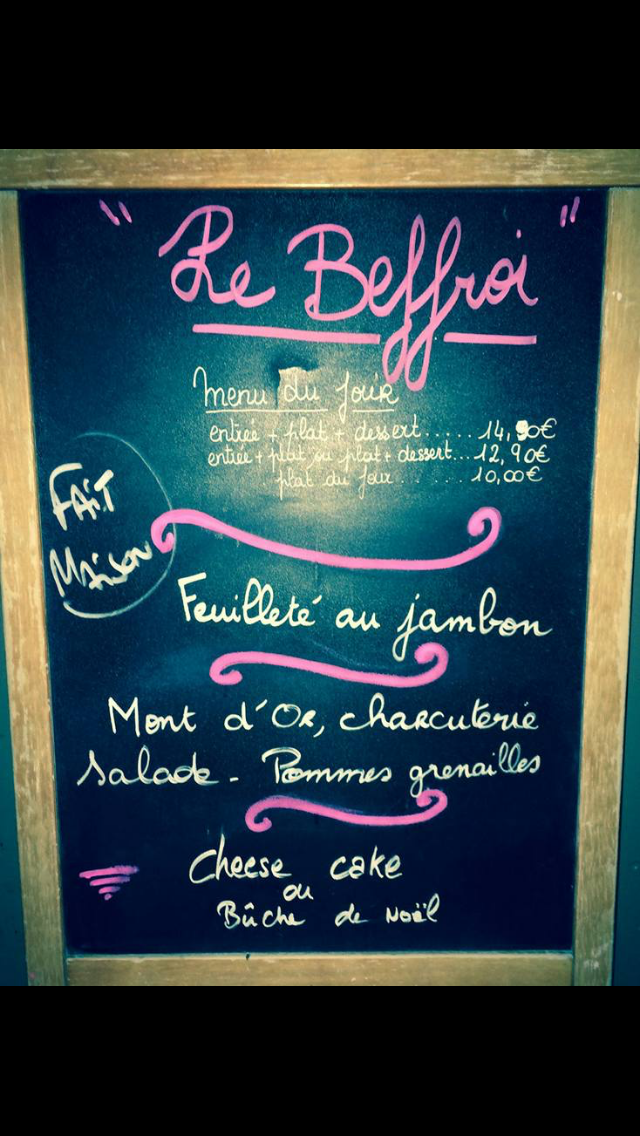 "Le Beffroi"
Menu du jour
entrée + plat + dessert.....14,90€
entrée + plat ou plat + dessert...12,90€
plat du jour.......10,00€
FAiT
MAiSON
Feuilleté au jambon
Mont d'Or, charcuterie
Salade - Pommes grenailles
Cheese cake
ou
Bûche de Noël